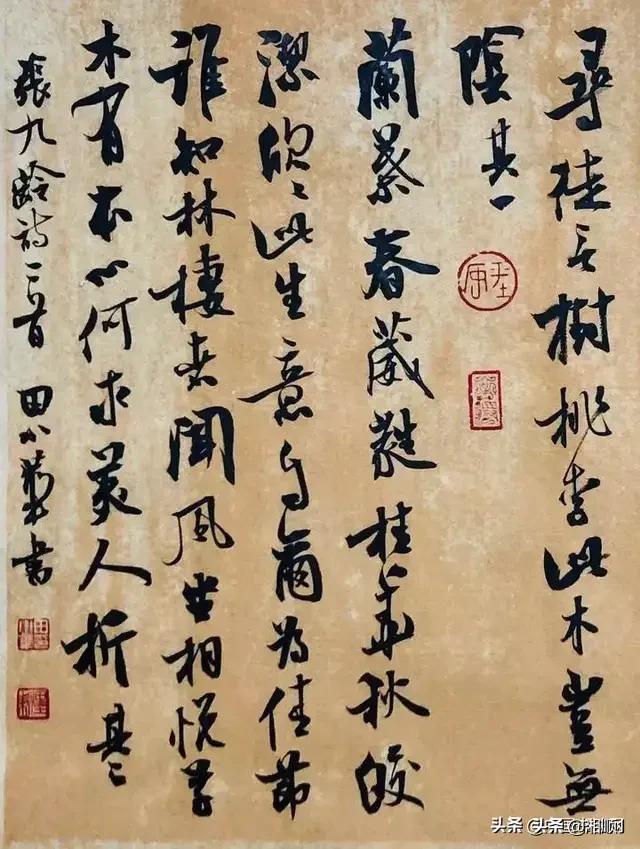 尋徒言樹桃李此木豈無
陰其一
蘭葉春葳蕤桂華秋皎
潔欣〻此生意自爾為佳節
誰知林棲者聞風坐相悅草
木有本心何求美人折其二
張九齡詩二首 田小華書
头条 头条